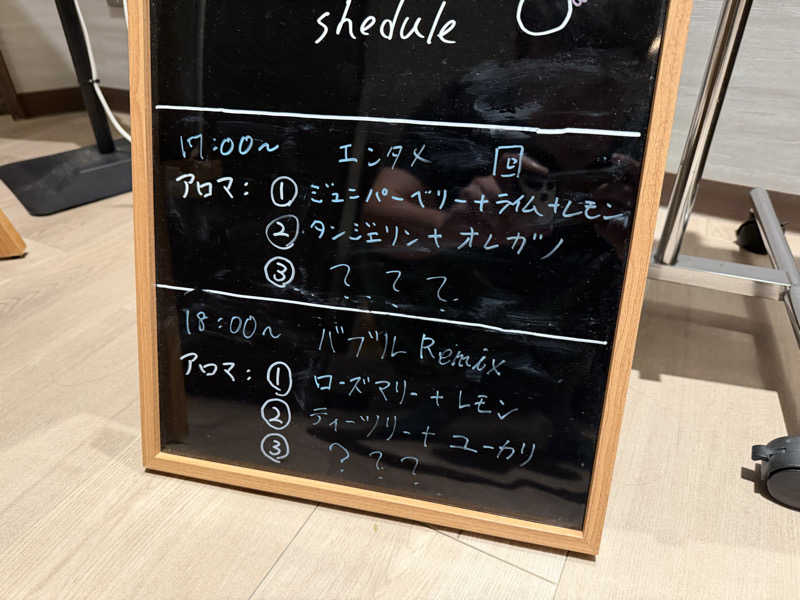 shedule
17:00~ エンタメ 回
アロマ: ① ジュニパーベリー+ライム+レモン
② タンジェリン+オレガノ
③ ? ? ?
18:00~ バブル Remix
アロマ: ① ローズマリー+レモン
② ティーツリー+ユーカリ
③ ? ? ?